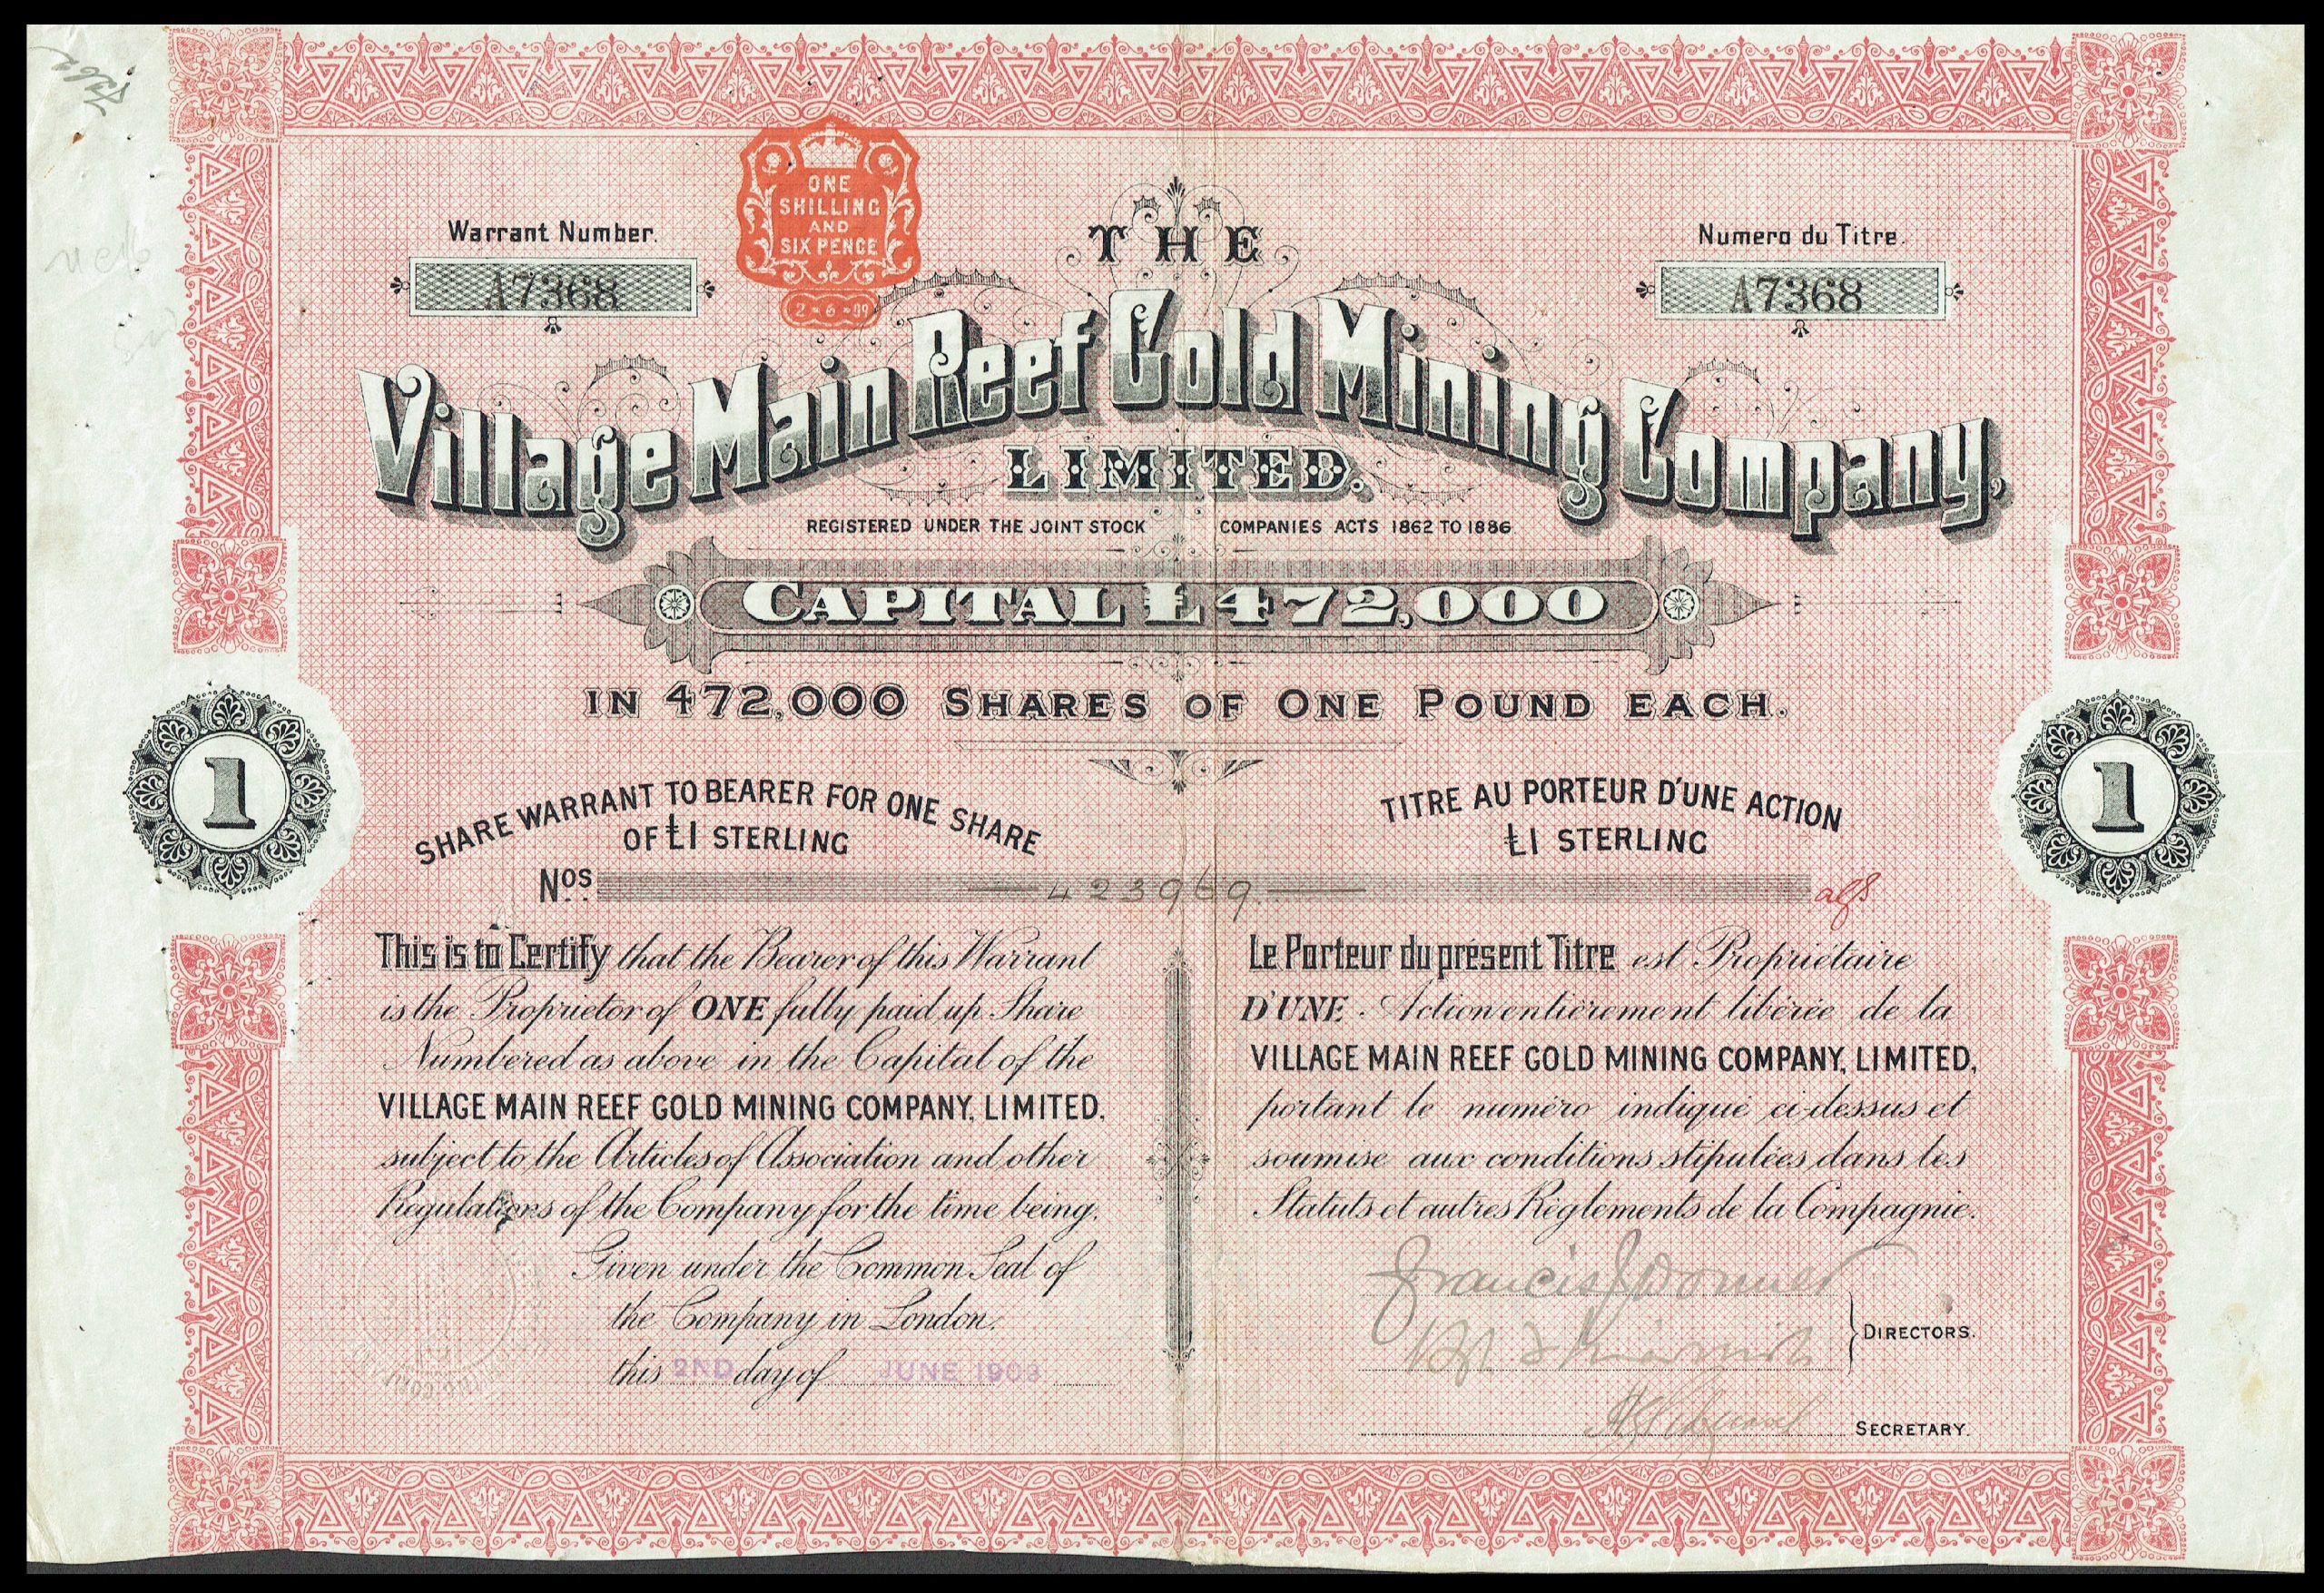 ONE
SHILLING
AND
SIX PENCE
Warrant Number.
A7368
THE
Numero du Titre.
A7368
Village Main Reef Gold Mining Company,
LIMITED.
REGISTERED UNDER THE JOINT STOCK COMPANIES ACTS 1862 TO 1886.
CAPITAL £472,000
IN 472,000 SHARES OF ONE POUND EACH.
1
1
SHARE WARRANT TO BEARER FOR ONE SHARE
OF £1 STERLING
TITRE AU PORTEUR D'UNE ACTION
£1 STERLING
Nos 423969
This is to Certify that the Bearer of this Warrant
is the Proprietor of ONE fully paid up Share
Numbered as above in the Capital of the
VILLAGE MAIN REEF GOLD MINING COMPANY, LIMITED,
subject to the Articles of Association and other
Regulations of the Company for the time being.
Given under the Common Seal of
the Company in London.
this 2ND day of JUNE
Le Porteur du présent Titre est Propriétaire
D'UNE Action entièrement libérée de la
VILLAGE MAIN REEF GOLD MINING COMPANY, LIMITED,
portant le numéro indiqué ci-dessus et
soumise aux conditions stipulées dans les
Statuts et autres Règlements de la Compagnie.
Francis J Dormer
DIRECTORS.
SECRETARY.